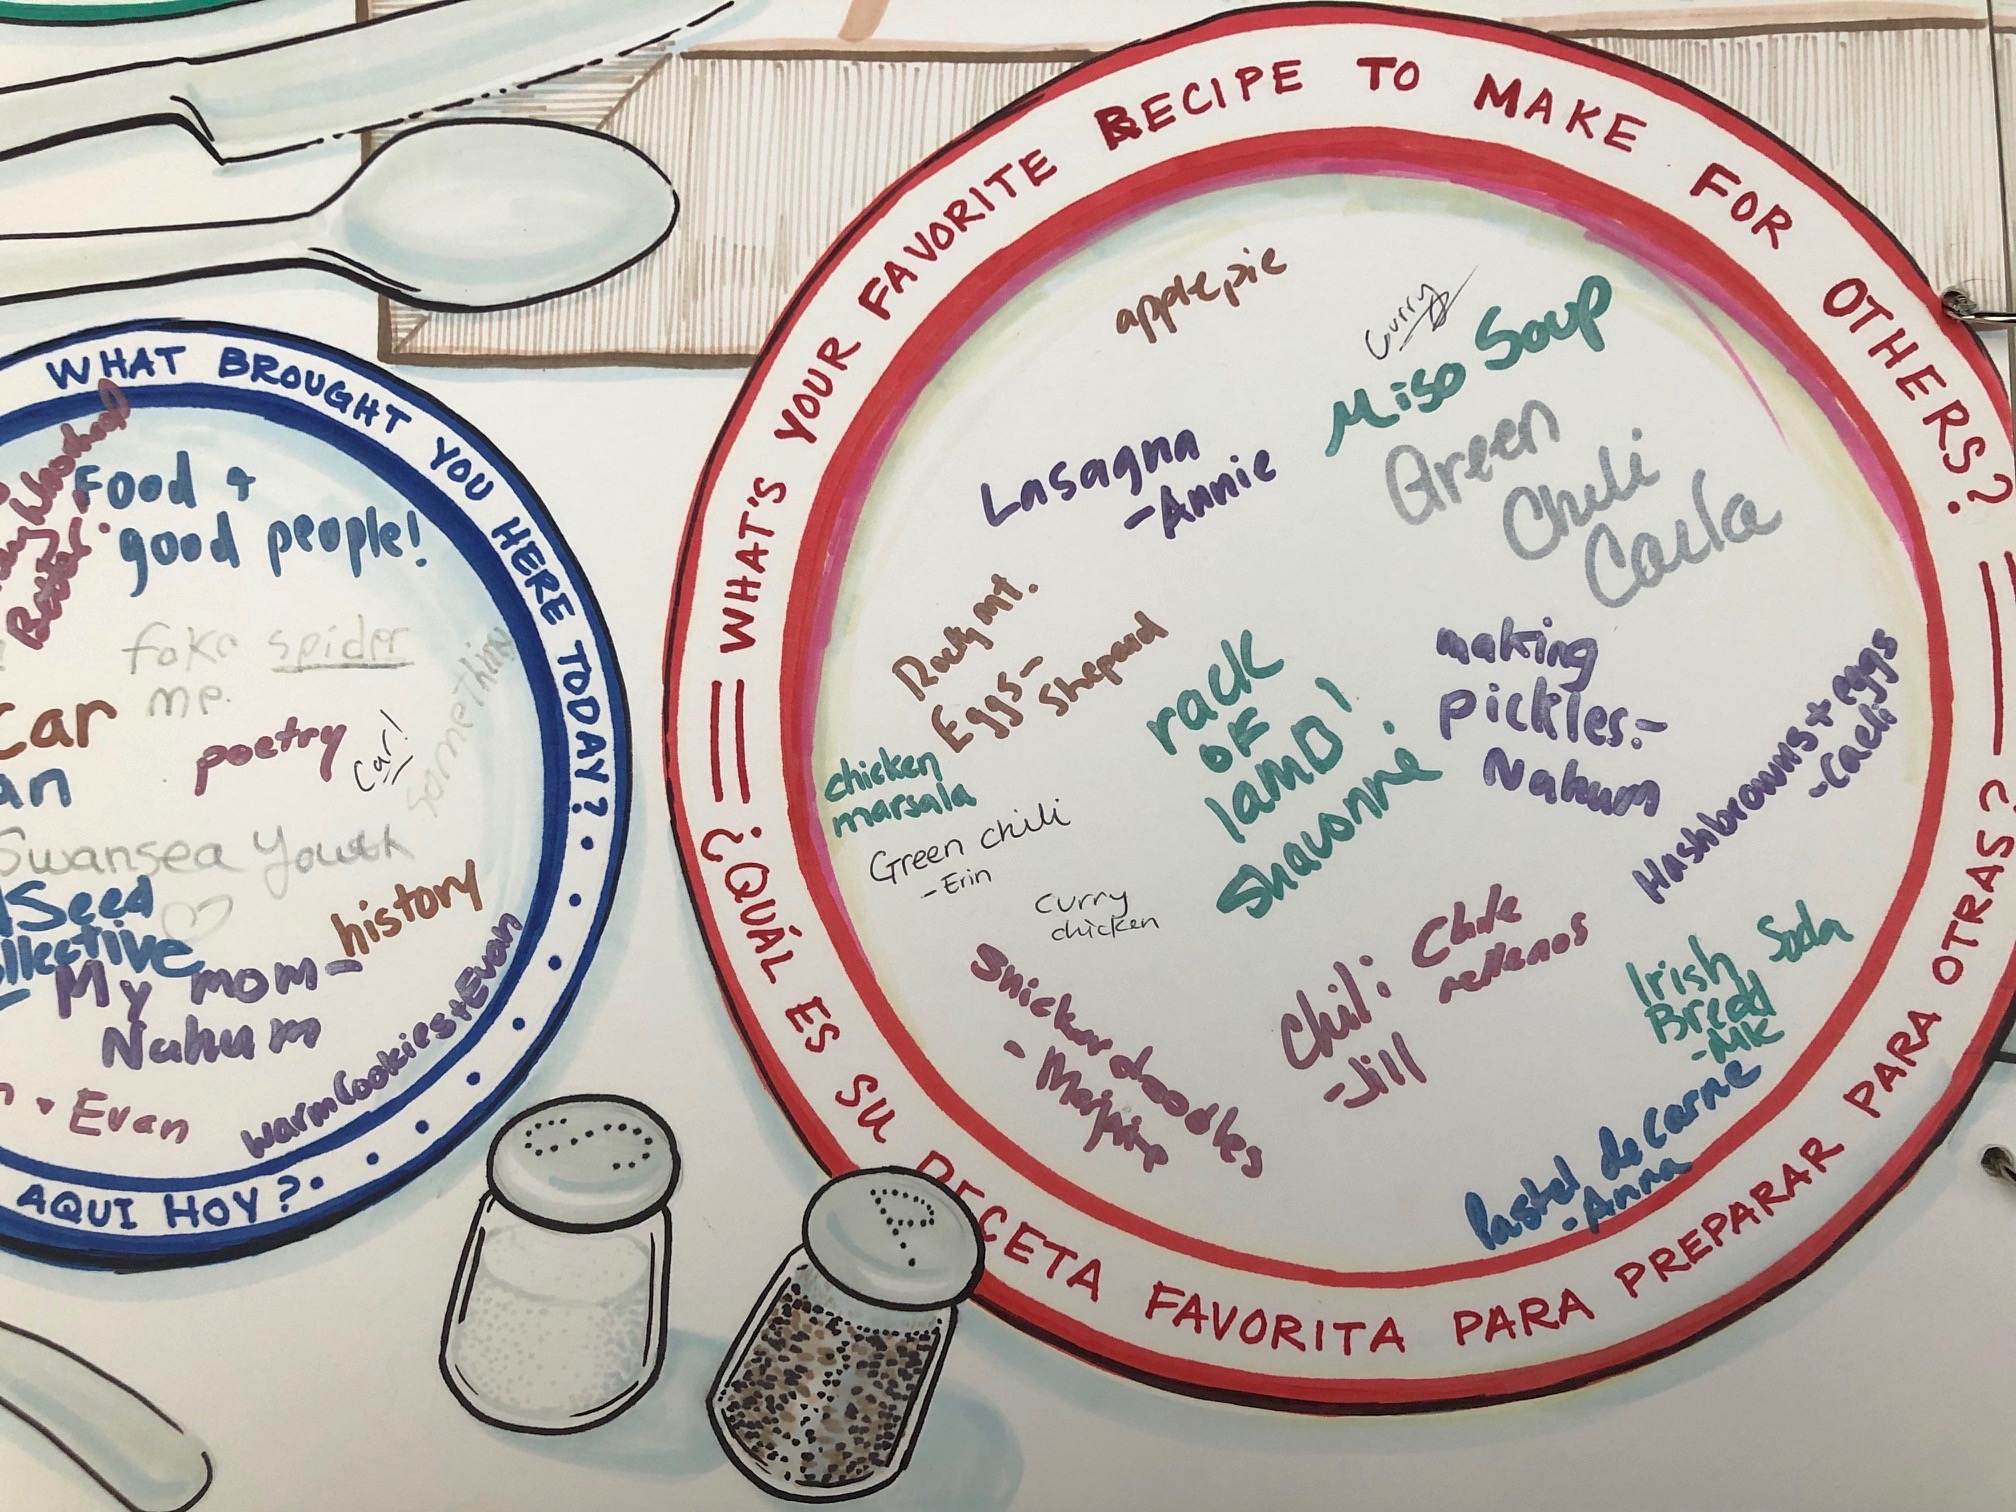 WHAT BROUGHT YOU HERE TODAY?
Better
Food +
good people!
fake spider
me.
something
car
an
poetry
car!
Swansea Youth
Seed
llective
My mom-
Nahum
history
warm Cookies + Evan
Evan
AQUI HOY?
WHAT'S YOUR FAVORITE RECIPE TO MAKE FOR OTHERS?
apple pie
Curry
Miso Soup
Lasagna
-Annie
Green
Chili
Carla
Rocky mt.
Eggs-
Shepard
rack
OF
lAMB!
Shavonne
making
pickles:-
Nahum
Hashbrowns + eggs
-Caeli
chicken
marsala
Green chili
-Erin
curry
chicken
Snickerdoodles
Chili
-Jill
Chile
rellenos
Irish Soda
Bread
-MK
Pastel de Carne
-Anna
¿QUÁL ES SU RECETA FAVORITA PARA PREPARAR PARA OTRAS?